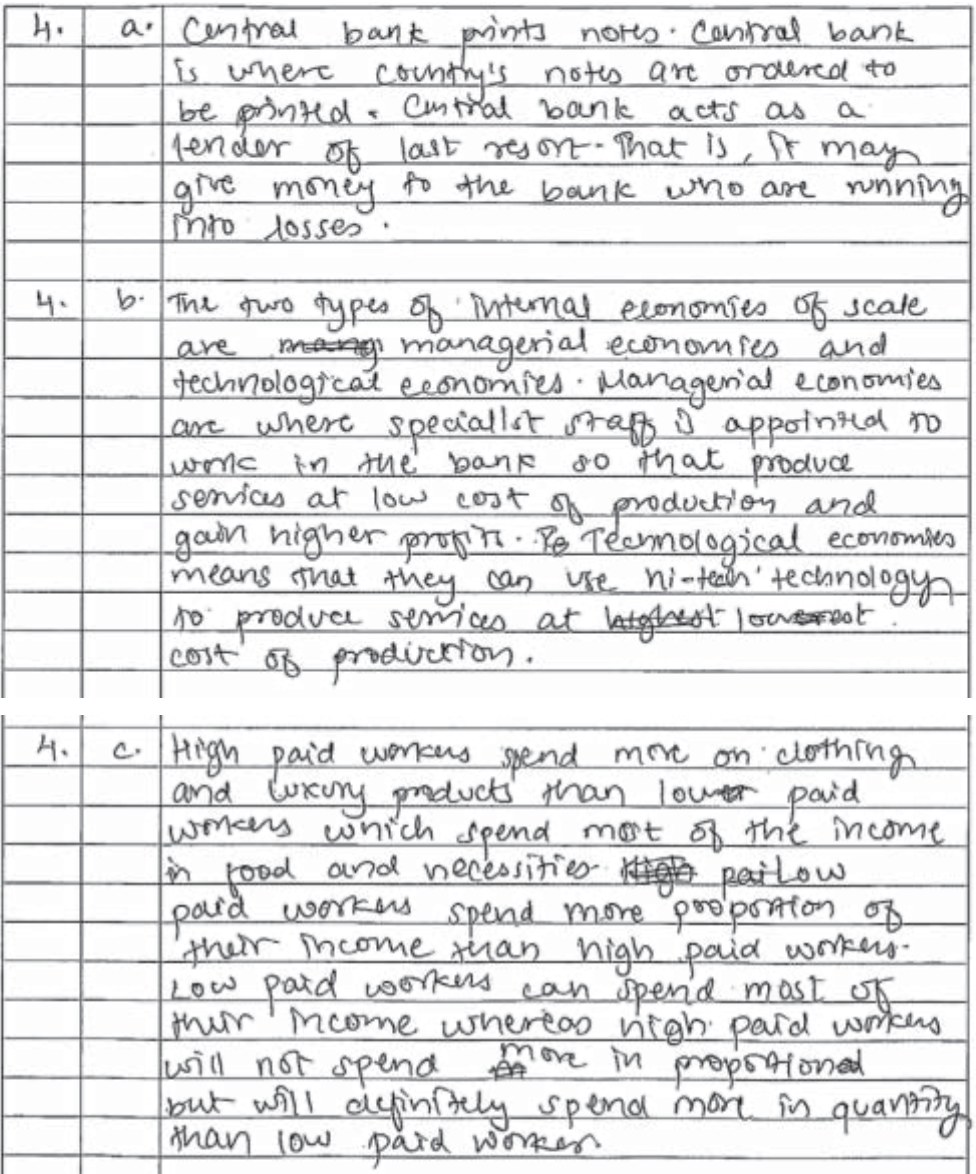 4. a. Central bank prints notes. Central bank
is where country's notes are ordered to
be printed. Central bank acts as a
lender of last resort. That is, it may
give money to the bank who are running
into losses.
4. b. The two types of internal economies of scale
are manag managerial economies and
technological economies. Managerial economies
are where specialist staff is appointed to
work in the bank so that produce
services at low cost of production and
gain higher profits. Te Technological economies
means that they can use hi-tech technology
to produce services at highest lowest
cost of production.
4. c. High paid workers spend more on clothing
and luxury products than lower paid
workers which spend most of the income
in food and necessities. High pai Low
paid workers spend more proportion of
their income than high paid workers.
Low paid workers can spend most of
their income whereas high paid workers
will not spend more in proportioned
but will definitely spend more in quantity
than low paid worker.